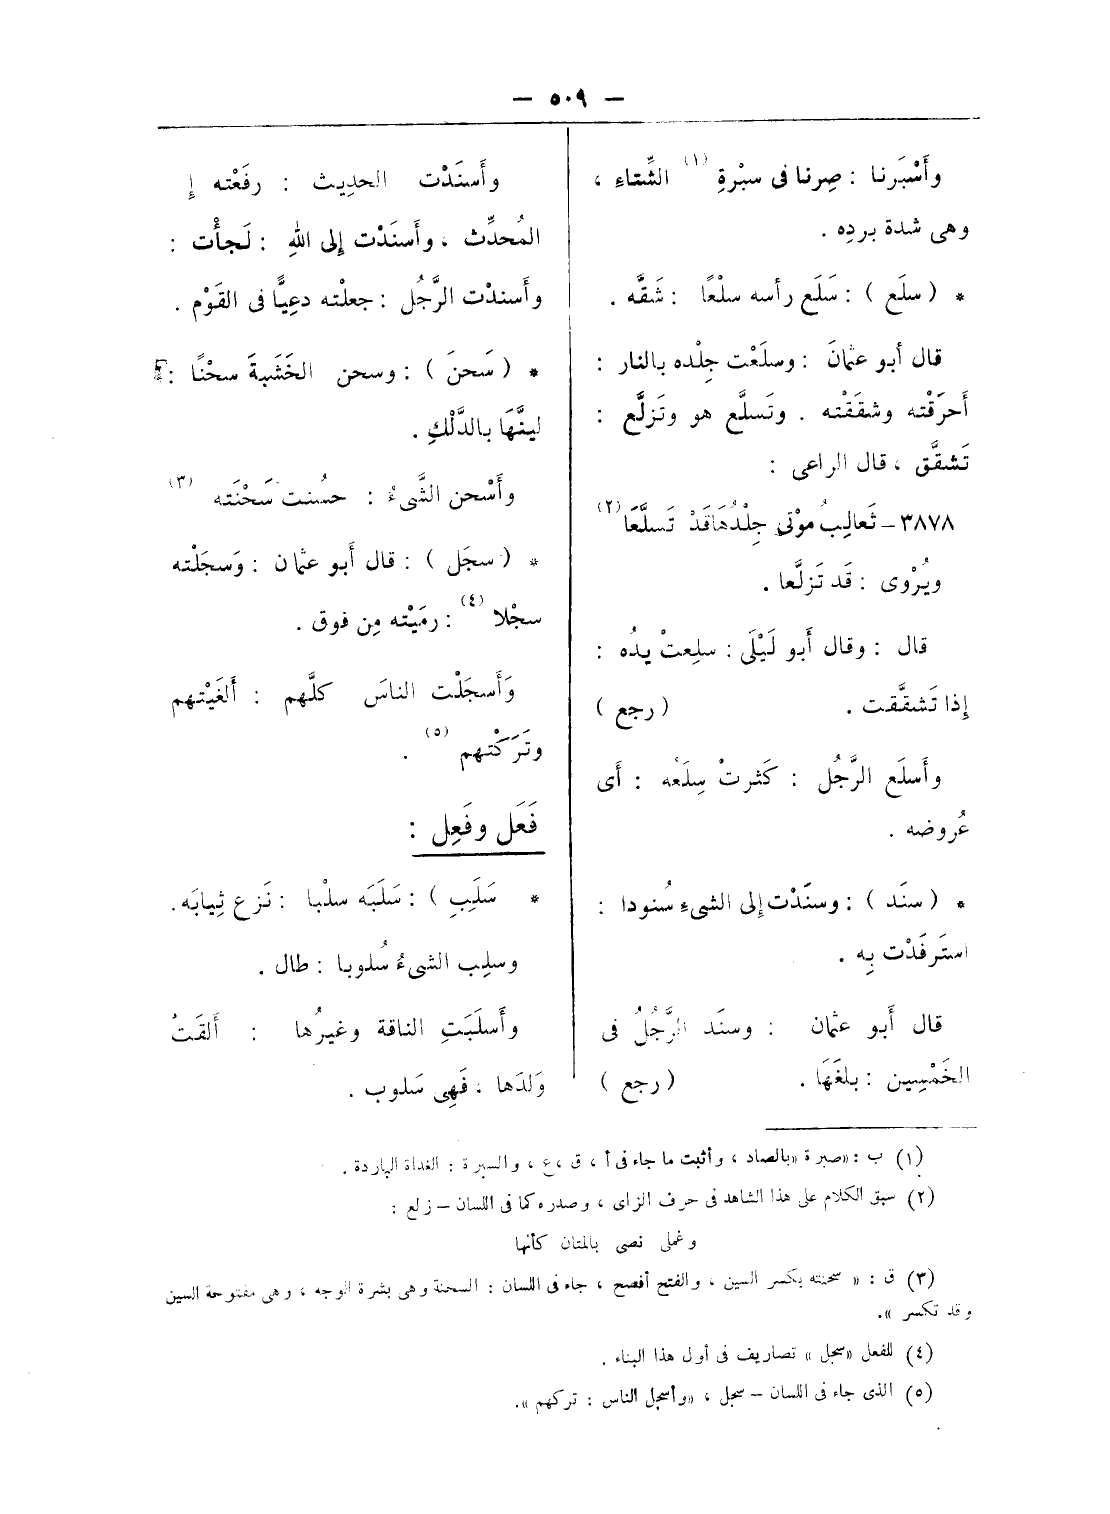 — ٥٠٩ —
وأَسْبَرنا : صِرنا فى سبْرةِ (١) الشِّتاءِ ،
وهى شدة بردِه .
* ( سلَع ) : سَلَع رأسه سلْعًا : شَقَّه .
قال أبو عثمانَ : وسلَعْت جِلْده بالنار :
أحرَقْته وشقَقْته . وتَسلَّع هو وتَزلَّع :
تَشقَّق ، قال الراعى :
٣٨٧٨ – ثَعالِبُ موْتى جِلْدُهَا قَدْ تَسلَّعَا (٢)
ويُرْوى : قَد تَزلَّعا .
قال : وقال أَبو لَيْلَى : سلِعتْ يدُه :
إذا تَشقَّقت . ( رجع )
وأَسلَع الرَّجُل : كَثرتْ سِلَعُه : أَى
عُروضه .
* ( سنَد ) : وسنَدْت إلى الشىءِ سُنودا :
استَرفَدْت بِه .
قال أَبو عثمان : وسنَد الرَّجُلُ فى
الخَمْسِين : بلغَهَا . ( رجع )
وأَسنَدْت الحدِيث : رفَعْته إ
المُحدِّث ، وأَسنَدْت إلى اللهِ : لَجأْت :
وأَسندْت الرَّجُل : جعلْته دعِيًّا فى القَوْم .
* ( سَحنَ ) : وسحن الخَشَبةَ سحْنًا :
لينَّهَا بالدَّلْكِ .
وأَسْحن الشَّىءُ : حسُنت سَحْنَته (٣)
* ( سجَل ) : قال أَبو عثمان : وَسجَلْته
سجْلا (٤) : رميْته مِن فوق .
وَأَسجَلْت الناسَ كلَّهم : أَلغَيْتهم
وتَرَكْتهم (٥) .
فَعَل وفَعِل :
* سَلَبِ ) : سَلَبَه سلْبا : نَزع ثِيابَه.
وسلِب الشىءُ سُلوبا : طال .
وأَسلَبَتِ الناقة وغيرُها : أَلقَتْ
وَلدَها ، فَهِى سَلوب .
(١) ب : «صبرة » بالصاد ، وأثبت ما جاء فى أ ، ق ، ع ، والسبرة : الغداة الباردة .
(٢) سبق الكلام على هذا الشاهد فى حرف الزاى ، وصدره كما فى اللسان – زلع :
وغملى نصى بالمتان كأنها
(٣) ق : « سحنته بكسر السين ، والفتح أفصح ، جاء فى اللسان : السحنة وهى بشرة الوجه ، وهى مفتوحة السين
وقد تكسر ».
(٤) للفعل «سجل » تصاريف فى أول هذا البناء .
(٥) الذى جاء فى اللسان – سجل ، «وأسجل الناس : تركهم ».